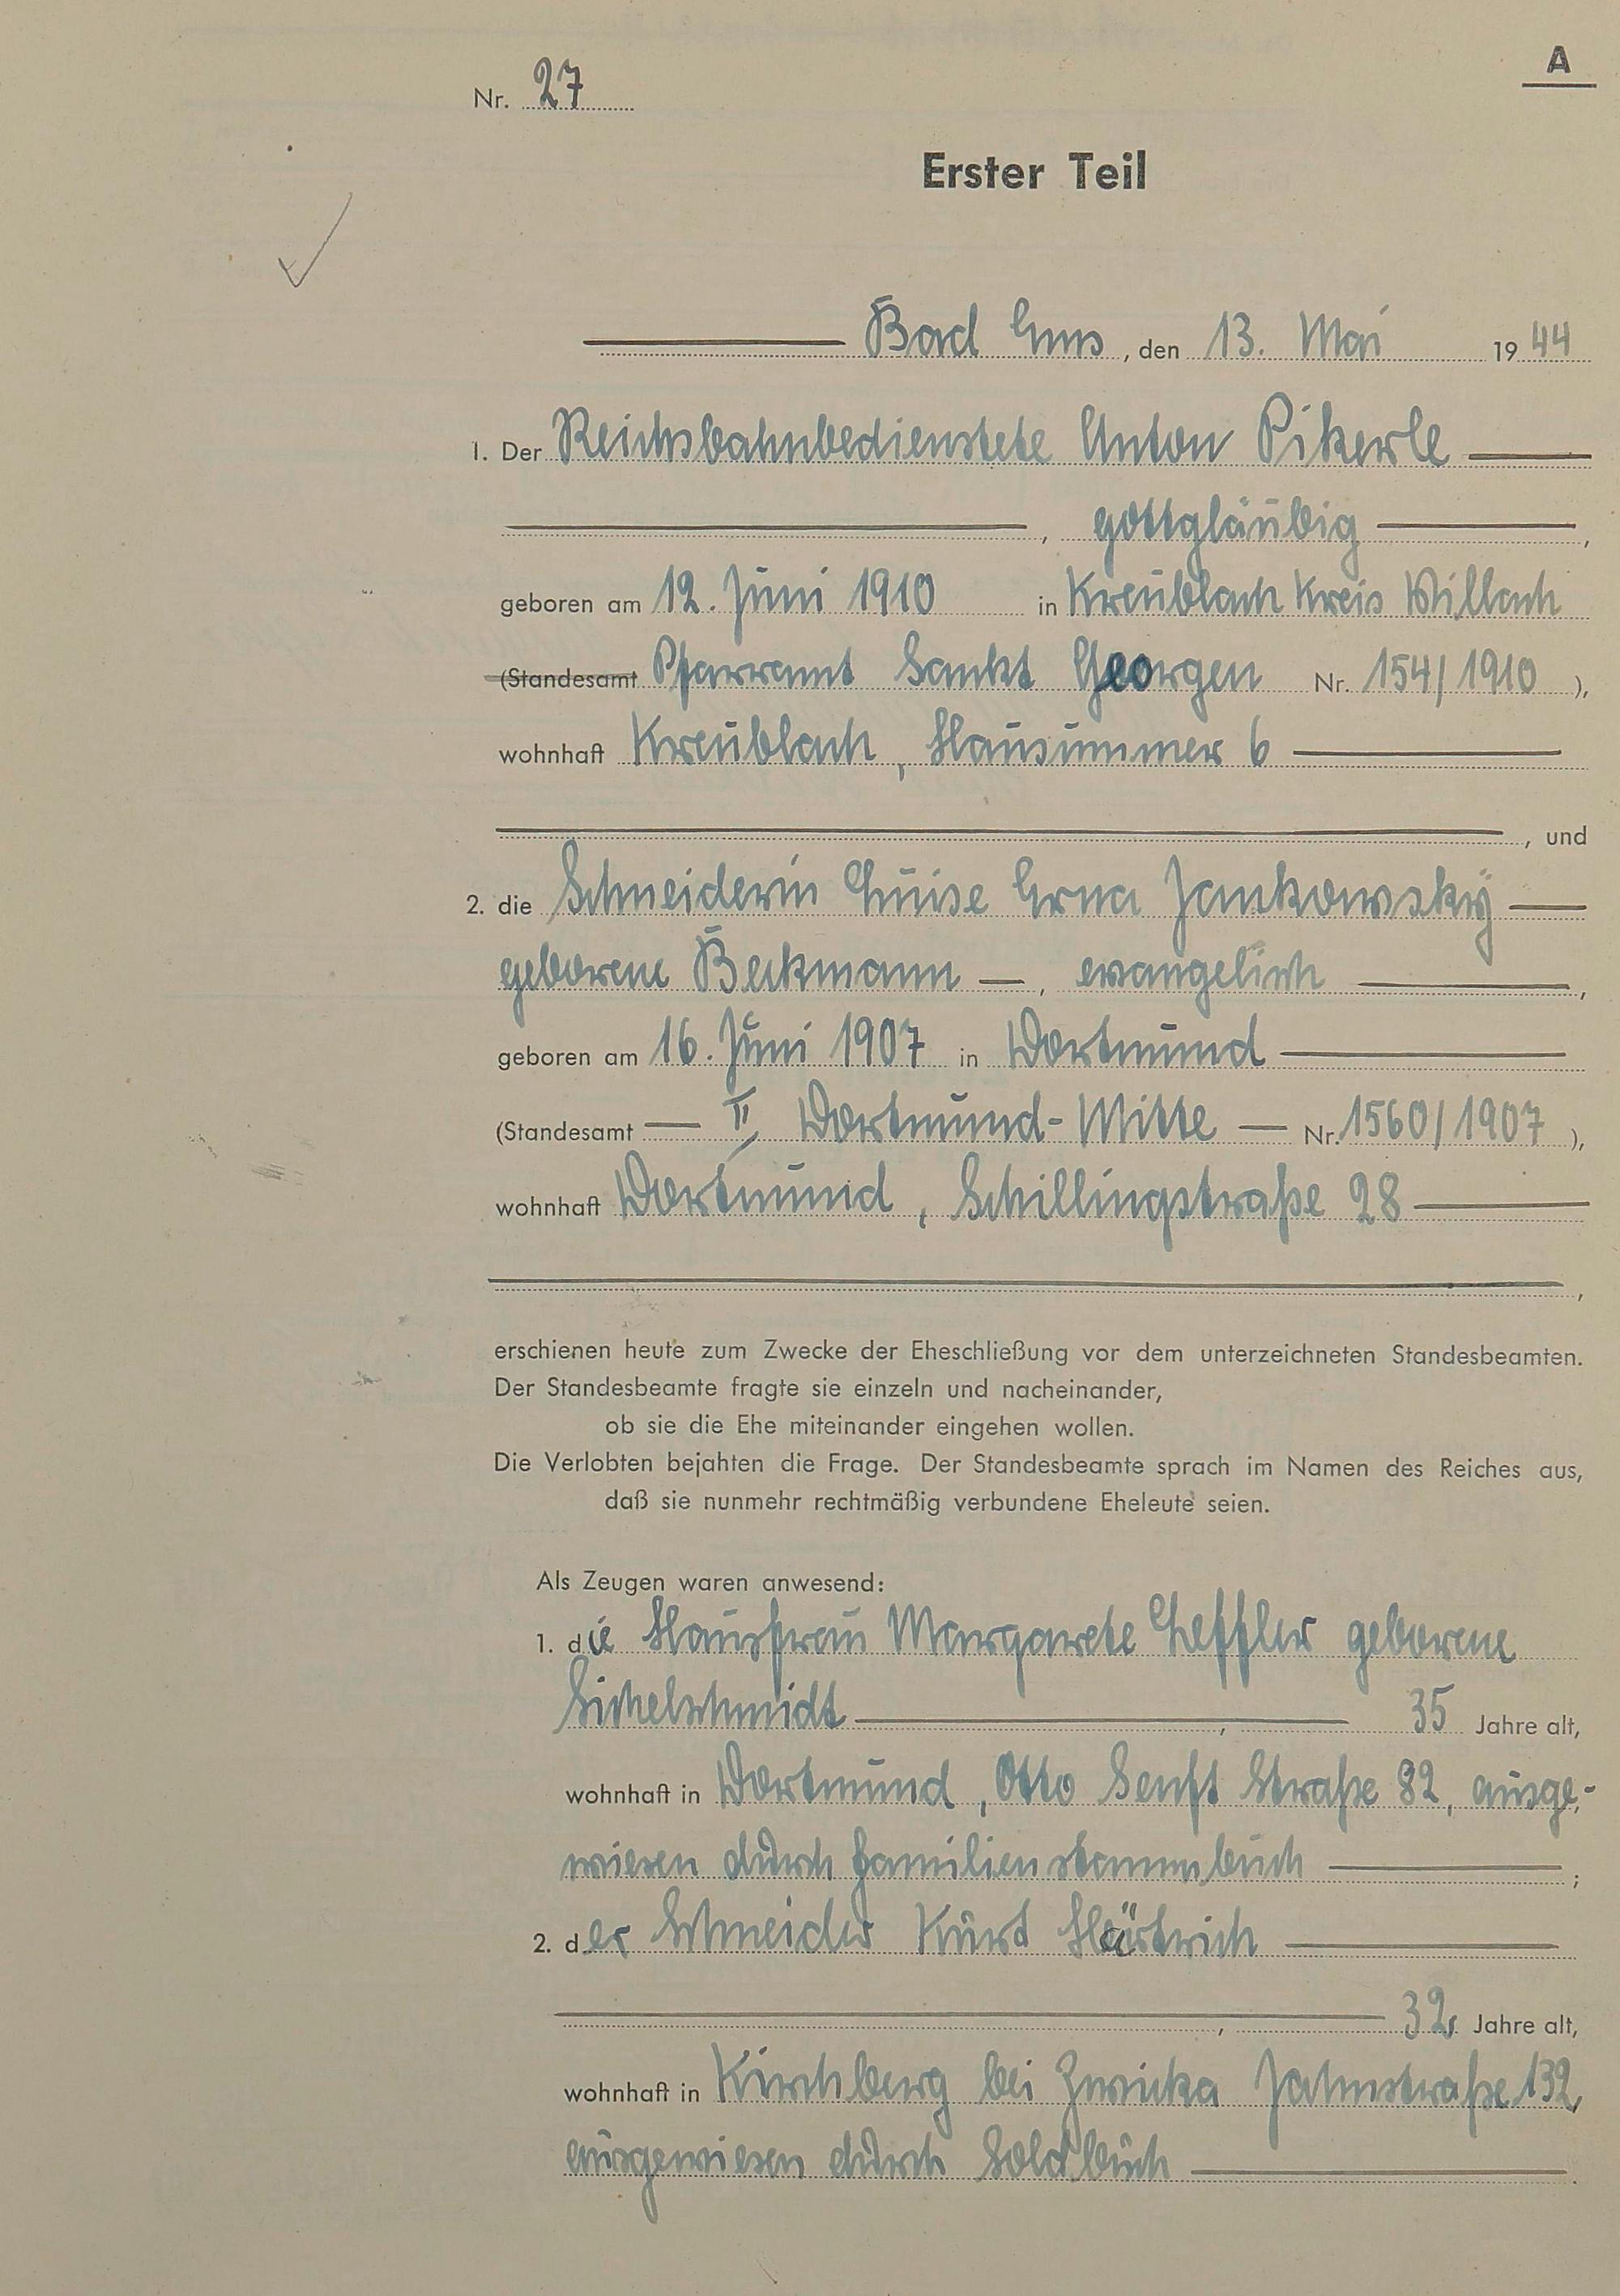 A
Nr. 27
Erster Teil
Bad Ems, den 13. Mai 1944
1. Der Reichsbahnbedienstete Anton Pikerle
, gottgläubig ,
geboren am 12. Juni 1910 in Kreublach Kreis Villach
(Standesamt Pfarramt Sankt Georgen Nr. 154/1910 ),
wohnhaft Kreublach, Hausnummer 6
, und
2. die Schneiderin Luise Erna Jankowsky
geborene Beckmann —, evangelisch ,
geboren am 16. Juni 1907 in Dortmund
(Standesamt — II, Dortmund-Mitte — Nr. 1560/1907 ),
wohnhaft Dortmund, Schillingstraße 28
,
erschienen heute zum Zwecke der Eheschließung vor dem unterzeichneten Standesbeamten.
Der Standesbeamte fragte sie einzeln und nacheinander,
ob sie die Ehe miteinander eingehen wollen.
Die Verlobten bejahten die Frage. Der Standesbeamte sprach im Namen des Reiches aus,
daß sie nunmehr rechtmäßig verbundene Eheleute seien.
Als Zeugen waren anwesend:
1. die Hausfrau Margarete Leffler geborene
Sichelschmidt , 35 Jahre alt,
wohnhaft in Dortmund, Otto Senft Straße 82, ausge-
wiesen durch Familienstammbuch ;
2. der Schneider Kurt Härtrich
, 32, Jahre alt,
wohnhaft in Kirchberg bei Zwicka Jahnstraße 132,
ausgewiesen durch Soldbuch .